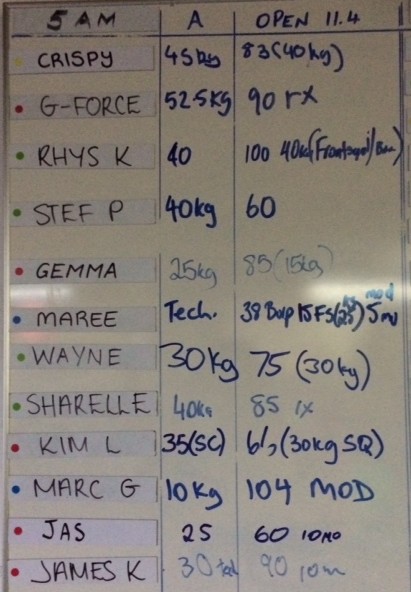 5 AM A OPEN 11.4
CRISPY 45kg 83(40kg)
G-FORCE 52.5KG 90 rx
RHYS K 40 100 40k(Frontsquat/
STEF P 40kg 60
GEMMA 25kg 85(15kg)
MAREE Tech. 38 Burp 15 FS( ) 5 mod
WAYNE 30kg 75 (30kg)
SHARELLE 40kg 85 rx
KIM L 35(SC) (30kg SQ)
MARC G 10kg 104 MOD
JAS 25 60
JAMES K 30 tech 90